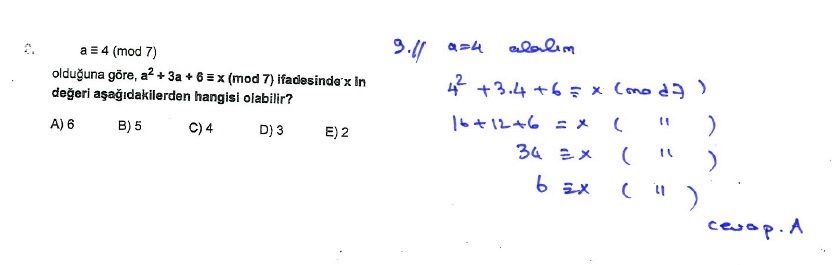 a ≡ 4 (mod 7)
olduğuna göre, a² + 3a + 6 ≡ x (mod 7) ifadesinde x in
değeri aşağıdakilerden hangisi olabilir?
A) 6 B) 5 C) 4 D) 3 E) 2
9.// a=4 alalım
4² + 3.4 + 6 ≡ x (mod 7)
16 + 12 + 6 = x ( " )
34 ≡ x ( " )
6 ≡ x ( " )
cevap. A